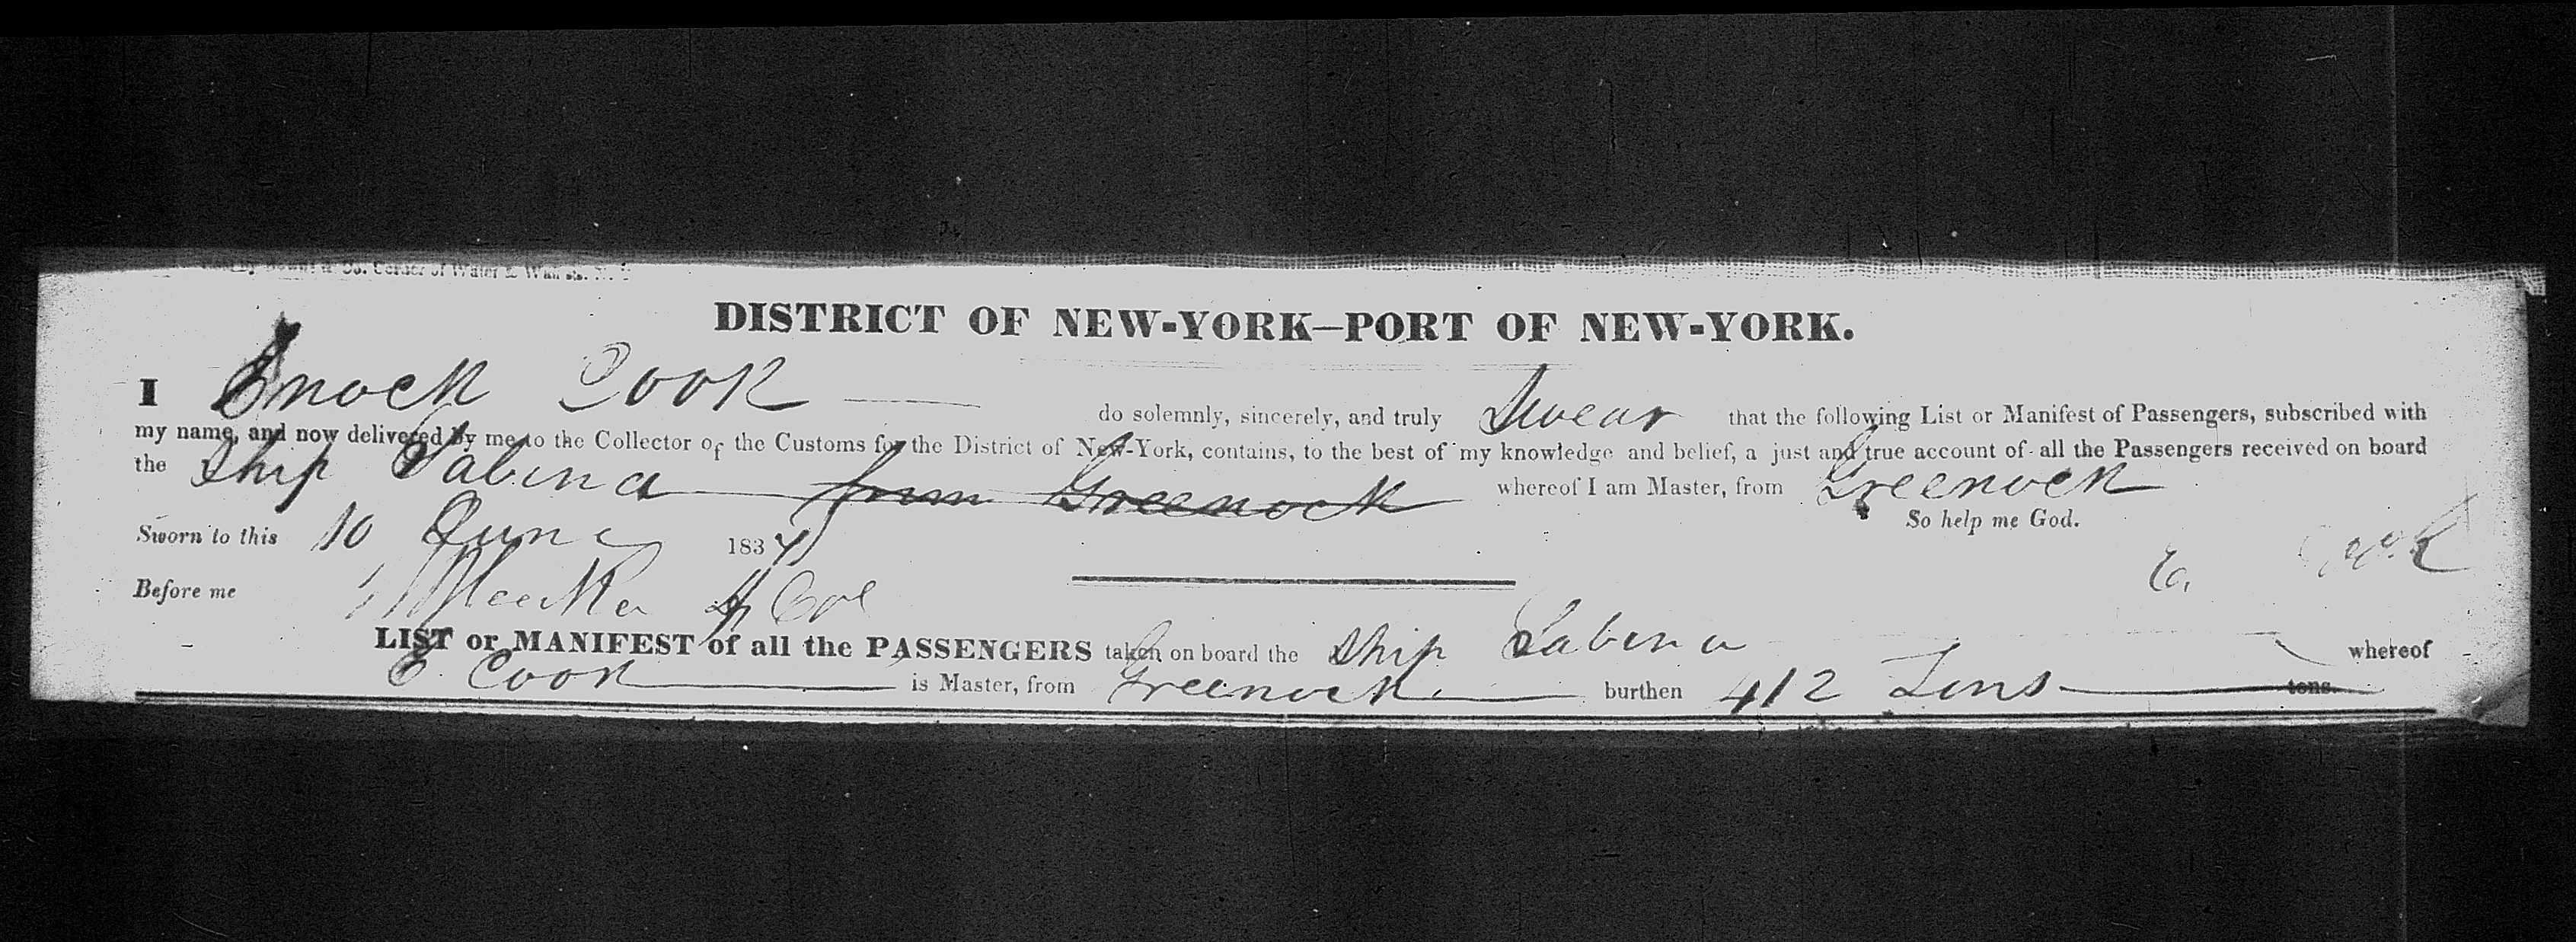 by Co. Corner of Water & Wall sts. N.
DISTRICT OF NEW-YORK—PORT OF NEW-YORK.
I Enock Cook do solemnly, sincerely, and truly Swear that the following List or Manifest of Passengers, subscribed with
my name, and now delivered by me to the Collector of the Customs for the District of New-York, contains, to the best of my knowledge and belief, a just and true account of all the Passengers received on board
the Ship Sabina from Greenock whereof I am Master, from Greenock
So help me God.
Sworn to this 10 June 183
E. Cook
Before me Col
LIST or MANIFEST of all the PASSENGERS taken on board the Ship Sabina whereof
E. Cook is Master, from Greenock burthen 412 Tons tons.